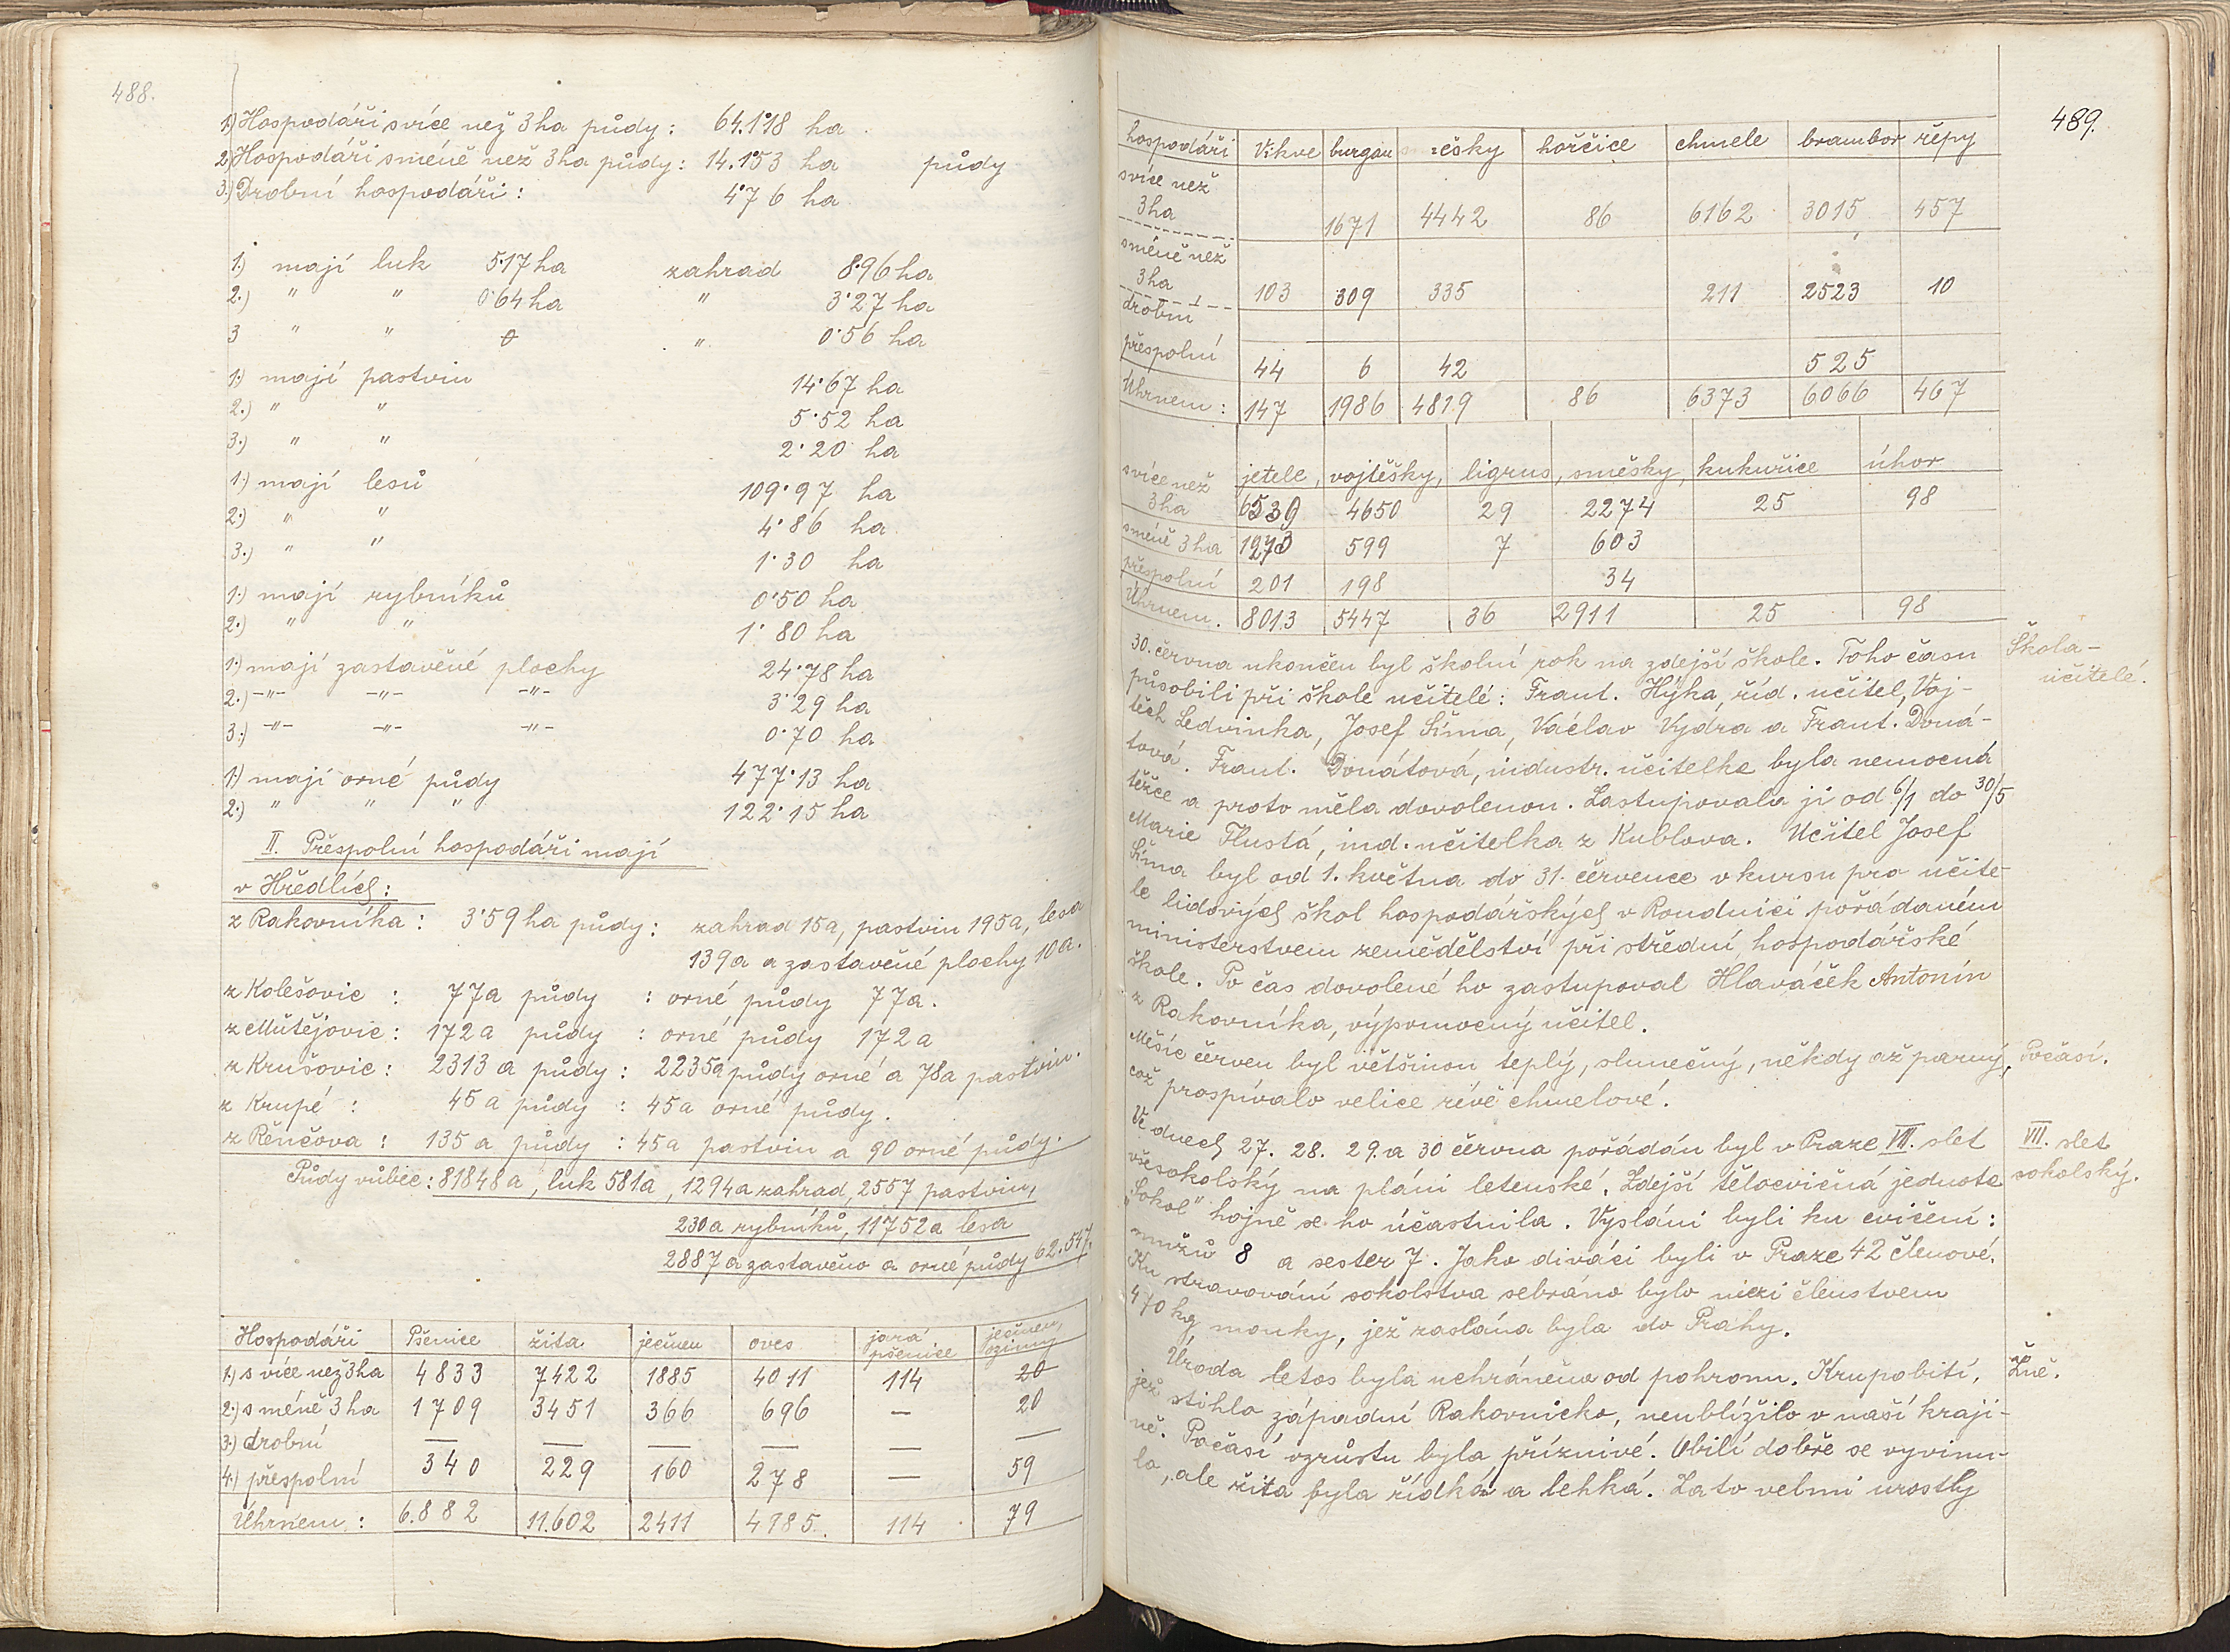 488.
1.) Hospodáři s více než 3 ha půdy: 64.118 ha
2.) Hospodáři s méně než 3 ha půdy: 14.153 ha půdy
3.) Drobní hospodáři: 4·76 ha
1.) mají luk 5·17 ha zahrad 8·96 ha
2.) " " 0·64 ha " 3·27 ha
3 " " 0 " 0·56 ha
1.) mají pastvin 14·67 ha
2.) " " 5·52 ha
3.) " " 2·20 ha
1.) mají lesů 109·97 ha
2.) " " 4·86 ha
3.) " " 1·30 ha
1.) mají rybníků 0·50 ha
2.) " " 1·80 ha
1.) mají zastavěné plochy 24·78 ha
2.) -"- -"- -"- 3·29 ha
3.) -"- -"- -"- 0·70 ha
1.) mají orné půdy 477·13 ha
2.) " " " 122·15 ha
II. Přespolní hospodáři mají
v Hředlích:
z Rakovníka: 3·59 ha půdy: zahrad 15a, pastvin 195a, lesa
139a a zastavěné plochy 10a.
z Kolešovic : 77a půdy : orné půdy 77a.
z Mutějovic: 172a půdy : orné půdy 172a
z Krušovic: 2313 a půdy: 2235a půdy orné a 78a pastvin.
z Krupé : 45a půdy : 45a orné půdy.
z Řenčova : 135a půdy : 45a pastvin a 90 orné půdy.
Půdy vůbec: 81848a, luk 581a, 1294a zahrad, 2557 pastvin,
230a rybníků, 11752a lesa
2887a zastavěno a orné půdy 62.547.
Hospodáři Pšenice žita ječmen oves jará pšenice ječmen ozimý
1.) s více než 3ha 4833 7422 1885 4011 114 20
2.) s méně 3 ha 1709 3451 366 696 — 20
3.) drobní — — — — — —
4.) přespolní 340 229 160 278 — 59
Úhrnem: 6.882 11.602 2411 4985. 114 79
489.
hospodáři Vikve burgun čočky hořčice chmele brambor řepy
s více než
3 ha 1671 4442 86 6162 3015 457
s méně než
3 ha 103 309 335 211 2523 10
drobní
přespolní 44 6 42 525
Úhrnem: 147 1986 4819 86 6373 6066 467
jetele, vojtěšky, ligrus, směsky, kukuřice úhor
s více než
3 ha 6539 4650 29 2274 25 98
s méně 3 ha 1273 599 7 603
přespolní 201 198 34
Úhrnem. 8013 5447 36 2911 25 98
30. června ukončen byl školní rok na zdejší škole. Toho času
Škola-
učitelé.
působili při škole učitelé: Frant. Hýka, říd. učitel, Voj-
těch Ledvinka, Josef Šíma, Václav Vydra a Frant. Doná-
tová. Frant. Donátová, industr. učitelka byla nemocná
těžce a proto měla dovolenou. Zastupovala ji od 6/1 do 30/5
Marie Tlustá, ind. učitelka z Kublova. Učitel Josef
Šíma byl od 1. května do 31. července v kursu pro učite-
le lidových škol hospodářských v Roudnici pořádaném
ministerstvem zemědělství při střední hospodářské
škole. Po čas dovolené ho zastupoval Hlaváček Antonín
z Rakovníka, výpomocný učitel.
Měsíc červen byl většinou teplý, slunečný, někdy až parný,
Počasí.
což prospívalo velice révě chmelové.
Ve dnech 27. 28. 29. a 30 června pořádán byl v Praze VII. slet
VII. slet
sokolský.
všesokolský na pláni letenské. Zdejší tělocvičná jednota
"Sokol" hojně se ho účastnila. Vysláni byli ku cvičení:
mužů 8 a sester 7. Jako diváci byli v Praze 42 členové.
Ku stravování sokolstva sebráno bylo mezi členstvem
470 kg mouky, jež zaslána byla do Prahy.
Úroda letos byla uchráněna od pohromu. Krupobití,
Žně.
jež stihlo západní Rakovnicko, neublížilo v naší kraji-
ně. Počasí vzrůstu byla příznivé. Obilí dobře se vyvinu-
lo, ale žita byla řídká a lehká. Za to velmi vrostly